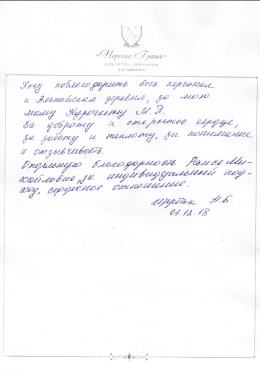 Хочу поблагодарить весь персонал
и Альпийская деревня, за мою
маму Курочкину М.Я.
За доброту и открытое сердце,
за заботу и теплоту, за понимание
и отзывчивость.
Отдельную благодарность Раисе Ми-
хайловне за индивидуальный под-
ход, сердечное отношение.
Н.Б.
01.12.18